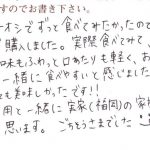 すのでお書き下さい。
オシでずっと食べてみたかったので
購入しました。実際食べてみて、
味もふわっと口あたりも軽く、お
一緒に食べやすいと感じました
も美味しかったです!!
用と一緒に実家(福岡)の家族
思います。ごちそうさまでした